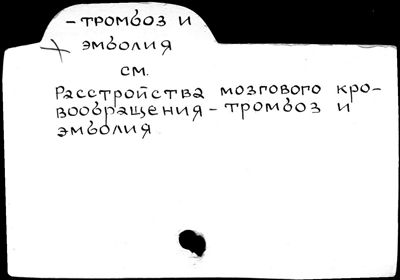 - тромбоз и
эмболия
см.
Расстройства мозгового кро-
вообращения - тромбоз и
эмболия